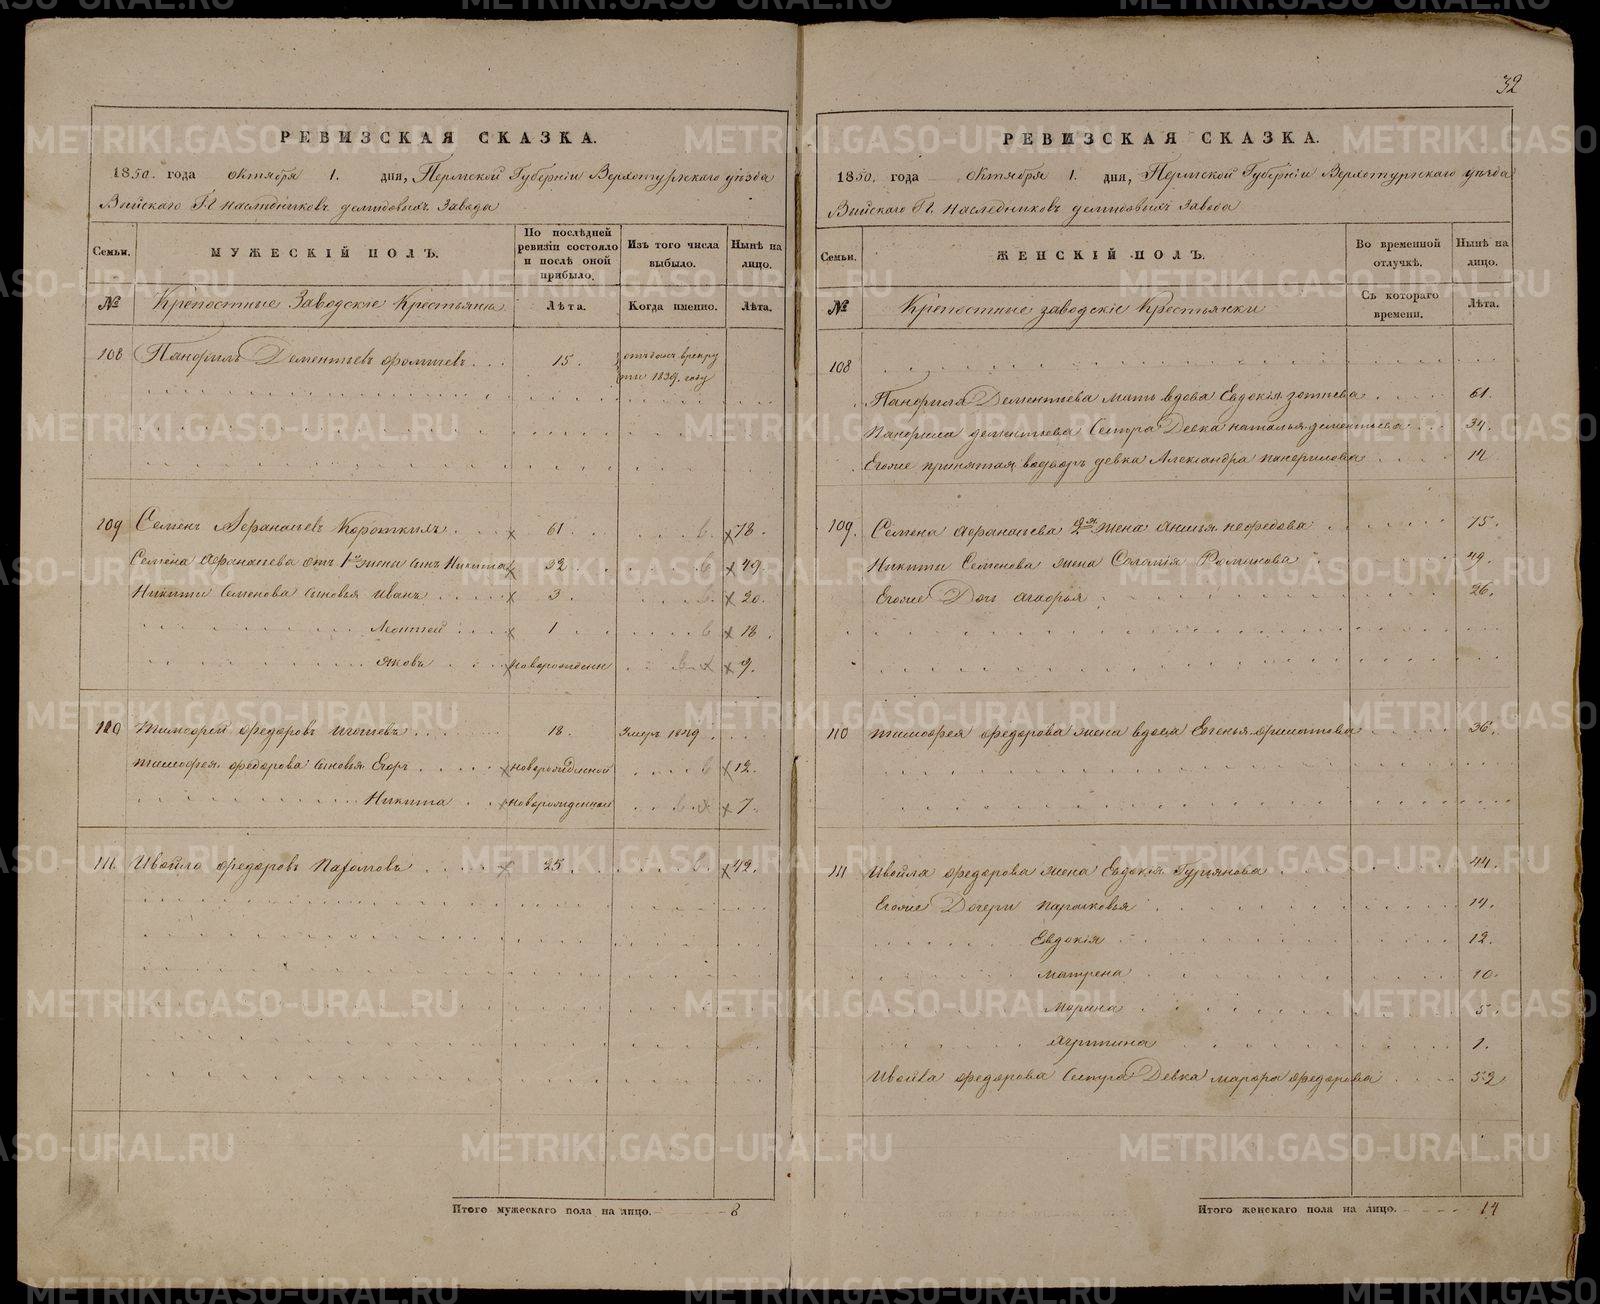 32
РЕВИЗСКАЯ СКАЗКА.
1850. года октября 1. дня, Пермской Губерніи Верхотурскаго уѣзда
Выйскаго Г.г. наслѣдниковъ демидовыхъ Завода
Семьи.
МУЖЕСКІЙ ПОЛЪ.
По послѣдней ревизіи состояло и послѣ оной прибыло.
Изъ того числа выбыло.
Нынѣ на лицо.
№
Крепостные Заводскіе Крестьяна
Лѣта.
Когда именно.
Лѣта.
108 Панфилъ Дементьевъ фомичевъ 15. отъданъ врекру
ты 1839. году
109 Семенъ Афанасьевъ Короткихъ 61 78.
Семена Афанасьева отъ 1й жены сынъ Никита 32 49.
Никиты Семенова сыновья Иванъ 3. 20.
Леонтей 1 18.
Яковъ новорожденн 9.
110 Тимофей федоровъ 18. Умеръ 1849.
Тимофея федорова сыновья Егоръ новорожденной 12.
Никита новорожденной 7.
111. Ивойло федоровъ Пахомовъ 25. 42.
Итого мужескаго пола на лицо. 8
РЕВИЗСКАЯ СКАЗКА.
1850. года октября 1. дня, Пермской Губерніи Верхотурскаго уѣзда
Выйскаго Гг. Наследниковъ демидовыхъ Завода
Семьи.
ЖЕНСКІЙ ПОЛЪ.
Во временной отлучкѣ.
Нынѣ на лицо.
№
Крепостные заводскіе Крестьянки
Съ котораго времени.
Лѣта.
108
Панфила Дементьева мать вдова Евдокія зотьева 61.
Панфила дементьева Сестра Девка наталья дементьева 34.
Егоже принятая водворъ девка Александра панфилова 14
109. Семена афанасьева 2я жена анисья нефедова 75.
Никиты Семенова жена Соломія Романова 49.
Егоже Дочь агафья 26.
110 тимофея федорова жена вдова Евгенья филатова 36.
111 Ивойла федорова жена Евдокія Гурьянова 44.
Егоже Дочери парасковья 14.
Евдокія 12.
матрена 10.
Марина 5.
1.
Ивойла федорова Сестра Девка марфа федорова 52
Итого женскаго пола на лицо. 14
METRIKI.GASO-URAL.RU